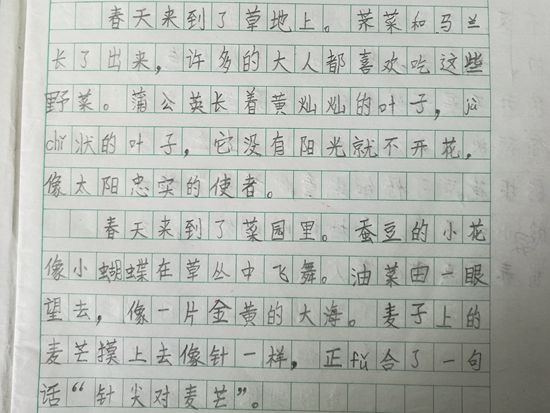 春天来到了草地上。荠菜和马兰
长了出来，许多的大人都喜欢吃这些
野菜。蒲公英长着黄灿灿的叶子，jù
chǐ状的叶子，它没有阳光就不开花，
像太阳忠实的使者。
春天来到了菜园里。蚕豆的小花
像小蝴蝶在草丛中飞舞。油菜田一眼
望去，像一片金黄的大海。麦子上的
麦芒摸上去像针一样，正fǔ合了一句
话“针尖对麦芒”。